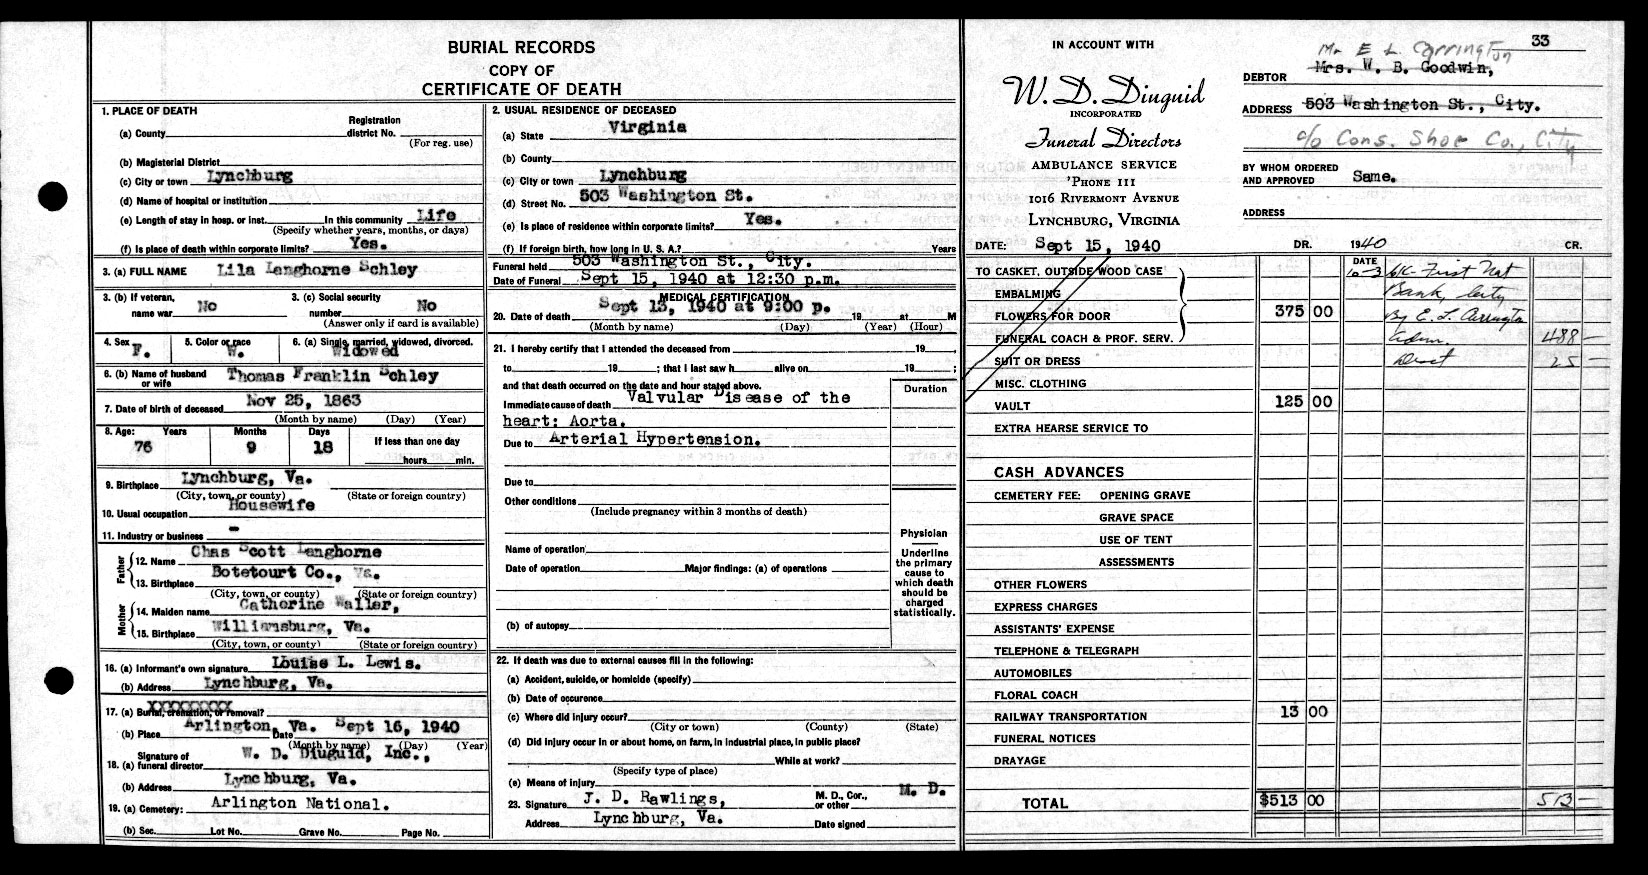 BURIAL RECORDS
COPY OF
CERTIFICATE OF DEATH
1. PLACE OF DEATH
(a) County
Registration district No.
(For reg. use)
(b) Magisterial District
(c) City or town Lynchburg
(d) Name of hospital or institution
(e) Length of stay in hosp. or inst. In this community Life
(Specify whether years, months, or days)
(f) Is place of death within corporate limits? Yes.
3. (a) FULL NAME Lila Langhorne Schley
3. (b) If veteran, name war No
3. (c) Social security number No
(Answer only if card is available)
4. Sex F.
5. Color or race W.
6. (a) Single, married, widowed, divorced. Widowed
6. (b) Name of husband or wife Thomas Franklin Schley
7. Date of birth of deceased Nov 25, 1863
(Month by name) (Day) (Year)
8. Age: Years 76 Months 9 Days 18
If less than one day
hours min.
9. Birthplace Lynchburg, Va.
(City, town, or county) (State or foreign country)
10. Usual occupation Housewife
11. Industry or business -
Father
12. Name Chas Scott Langhorne
13. Birthplace Botetourt Co., Va.
(City, town, or county) (State or foreign country)
Mother
14. Maiden name Catherine Waller,
15. Birthplace Williamsburg, Va.
(City, town, or county) (State or foreign country)
16. (a) Informant's own signature Louise L. Lewis.
(b) Address Lynchburg, Va.
17. (a) Burial, cremation, or removal? XXXXXXXXX
(b) Place Arlington, Va. Date Sept 16, 1940
(Month by name) (Day) (Year)
18. (a) Signature of funeral director W. D. Diuguid, Inc.,
(b) Address Lynchburg, Va.
19. (a) Cemetery: Arlington National.
(b) Sec. Lot No. Grave No. Page No.
2. USUAL RESIDENCE OF DECEASED
(a) State Virginia
(b) County
(c) City or town Lynchburg
(d) Street No. 503 Washington St.
(e) Is place of residence within corporate limits? Yes.
(f) If foreign birth, how long in U. S. A.? Years
Funeral held 503 Washington St., City.
Date of Funeral Sept 15, 1940 at 12:30 p.m.
MEDICAL CERTIFICATION
20. Date of death Sept 13, 1940 at 9:00 p. 19 at M
(Month by name) (Day) (Year) (Hour)
21. I hereby certify that I attended the deceased from 19 ,
to 19 ; that I last saw h alive on 19 ;
and that death occurred on the date and hour stated above.
Duration
Immediate cause of death Valvular Disease of the
heart: Aorta.
Due to Arterial Hypertension.
Due to
Other conditions
(Include pregnancy within 3 months of death)
Name of operation
Date of operation Major findings: (a) of operations
(b) of autopsy
Physician
Underline the primary cause to which death should be charged statistically.
22. If death was due to external causes fill in the following:
(a) Accident, suicide, or homicide (specify)
(b) Date of occurence
(c) Where did injury occur?
(City or town) (County) (State)
(d) Did injury occur in or about home, on farm, in industrial place, in public place?
While at work?
(Specify type of place)
(e) Means of injury
23. Signature J. D. Rawlings, M. D., Cor., or other M. D.
Address Lynchburg, Va. Date signed
IN ACCOUNT WITH
W. D. Diuguid
INCORPORATED
Funeral Directors
AMBULANCE SERVICE
'PHONE 111
1016 RIVERMONT AVENUE
LYNCHBURG, VIRGINIA
33
Mr E L. Carrington
DEBTOR Mrs. W. B. Goodwin,
ADDRESS 503 Washington St., City.
c/o Cons. Shoe Co., City
BY WHOM ORDERED AND APPROVED Same.
ADDRESS
DATE: Sept 15, 1940 DR. 1940 CR.
DATE
TO CASKET, OUTSIDE WOOD CASE 10-3 ck First Nat
EMBALMING Bank, City
FLOWERS FOR DOOR 375 00 By E. L. Carrington
FUNERAL COACH & PROF. SERV. Adm. 488 —
SUIT OR DRESS Disct 25 —
MISC. CLOTHING
VAULT 125 00
EXTRA HEARSE SERVICE TO
CASH ADVANCES
CEMETERY FEE: OPENING GRAVE
GRAVE SPACE
USE OF TENT
ASSESSMENTS
OTHER FLOWERS
EXPRESS CHARGES
ASSISTANTS' EXPENSE
TELEPHONE & TELEGRAPH
AUTOMOBILES
FLORAL COACH
RAILWAY TRANSPORTATION 13 00
FUNERAL NOTICES
DRAYAGE
TOTAL $513 00 513 —